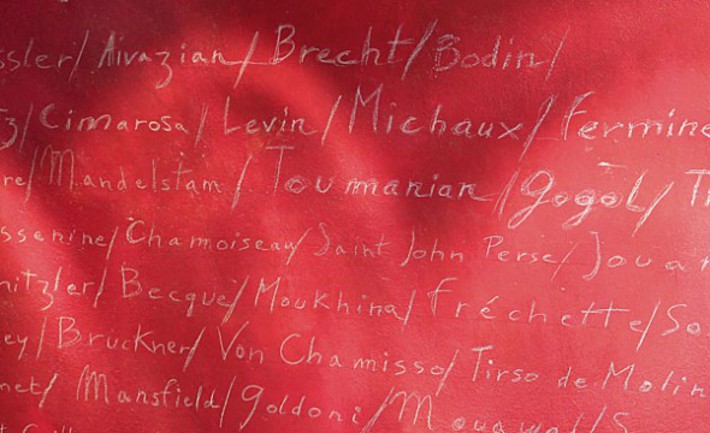 ssler/ Aivazian/ Brecht/ Bodin/
tz/ Cimarosa/ Levin/ Michaux/ Fermine
re/ Mandelstam/ Toumanian/ Gogol/ T
ssenine/ Chamoiseau/ Saint John Perse/ Joua
nitzler/ Becque/ Moukhina/ Fréchette/ So
ey/ Bruckner/ Von Chamisso/ Tirso de Molin
net/ Mansfield/ Goldoni/ Mouawad/ S